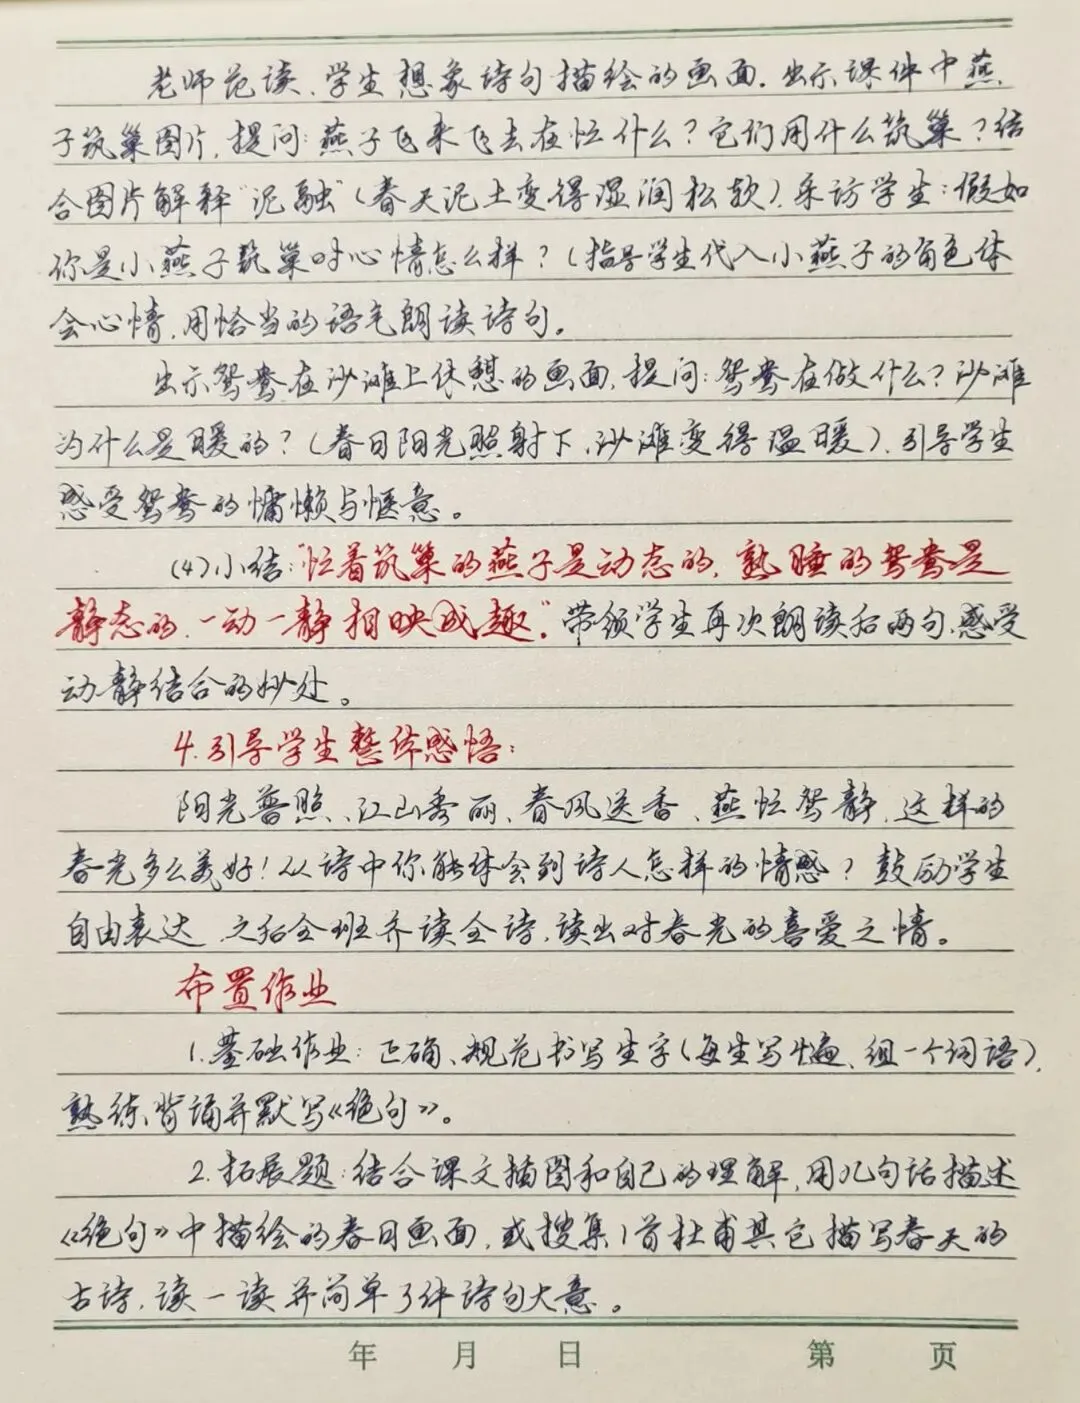 老师范读,学生想象诗句描绘的画面。出示课件中燕
子筑巢图片,提问:燕子飞来飞去在忙什么?它们用什么筑巢?结
合图片解释“泥融”(春天泥土变得湿润松软),采访学生:假如
你是小燕子筑巢时心情怎么样?(指导学生代入小燕子的角色体
会心情,用恰当的语气朗读诗句。
出示鸳鸯在沙滩上休憩的画面,提问:鸳鸯在做什么?沙滩
为什么是暖的?(春日阳光照射下,沙滩变得温暖),引导学生
感受鸳鸯的慵懒与惬意。
(4)小结:“忙着筑巢的燕子是动态的,熟睡的鸳鸯是
静态的,一动一静相映成趣。”带领学生再次朗读后两句,感受
动静结合的妙处。
4.引导学生整体感悟:
阳光普照、江山秀丽、春风送香、燕忙鸳静,这样的
春光多么美好!从诗中你能体会到诗人怎样的情感?鼓励学生
自由表达,之后全班齐读全诗,读出对春光的喜爱之情。
布置作业
1.基础作业:正确、规范书写生字(每生写4遍、组一个词语),
熟练背诵并默写《绝句》。
2.拓展题:结合课文插图和自己的理解,用几句话描述
《绝句》中描绘的春日画面,或搜集1首杜甫其它描写春天的
古诗,读一读并简单了解诗句大意。
年 月 日 第 页